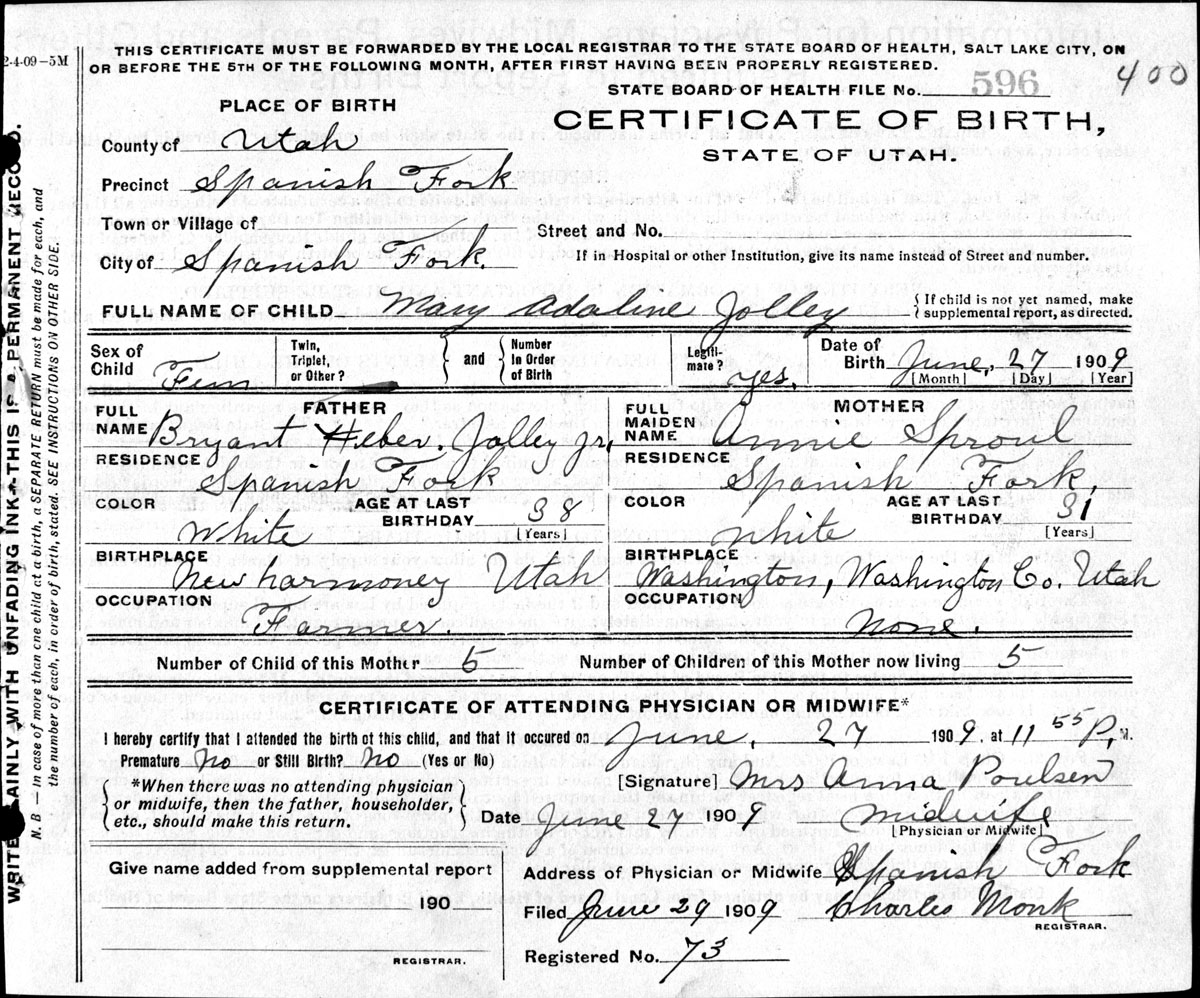 2-4-09-5M
THIS CERTIFICATE MUST BE FORWARDED BY THE LOCAL REGISTRAR TO THE STATE BOARD OF HEALTH, SALT LAKE CITY, ON
OR BEFORE THE 5TH OF THE FOLLOWING MONTH, AFTER FIRST HAVING BEEN PROPERLY REGISTERED.
STATE BOARD OF HEALTH FILE No. 596
400
PLACE OF BIRTH
CERTIFICATE OF BIRTH,
STATE OF UTAH.
County of Utah
Precinct Spanish Fork
Town or Village of
Street and No.
City of Spanish Fork.
If in Hospital or other Institution, give its name instead of Street and number.
FULL NAME OF CHILD Mary Adaline Jolley
{ If child is not yet named, make
supplemental report, as directed.
Sex of Child Fem
Twin, Triplet, or Other?
and
Number in Order of Birth
Legiti-mate? yes.
Date of Birth June, 27 1909
[Month] [Day] [Year]
FATHER
FULL NAME Bryant Heber Jolley Jr,
RESIDENCE Spanish Fork
COLOR White
AGE AT LAST BIRTHDAY 38
[Years]
BIRTHPLACE New harmoney Utah
OCCUPATION Farmer.
MOTHER
FULL MAIDEN NAME Annie Sproul
RESIDENCE Spanish Fork,
COLOR White
AGE AT LAST BIRTHDAY 31
[Years]
BIRTHPLACE Washington, Washington Co. Utah
OCCUPATION None.
Number of Child of this Mother 5
Number of Children of this Mother now living 5
CERTIFICATE OF ATTENDING PHYSICIAN OR MIDWIFE*
I hereby certify that I attended the birth of this child, and that it occured on June, 27 1909, at 11 55 P, M.
Premature No or Still Birth? No (Yes or No)
*When there was no attending physician
or midwife, then the father, householder,
etc., should make this return.
[Signature] Mrs Anna Poulsen
Date June 27 1909 midwife
[Physician or Midwife]
Give name added from supplemental report
190
REGISTRAR.
Address of Physician or Midwife Spanish Fork
Filed June 29 1909 Charles Monk
REGISTRAR.
Registered No. 73
WRITE PLAINLY WITH UNFADING INK--THIS IS A PERMANENT RECORD.
N. B. — In case of more than one child at a birth, a SEPARATE RETURN must be made for each, and
the number of each, in order of birth, stated. SEE INSTRUCTIONS ON OTHER SIDE.